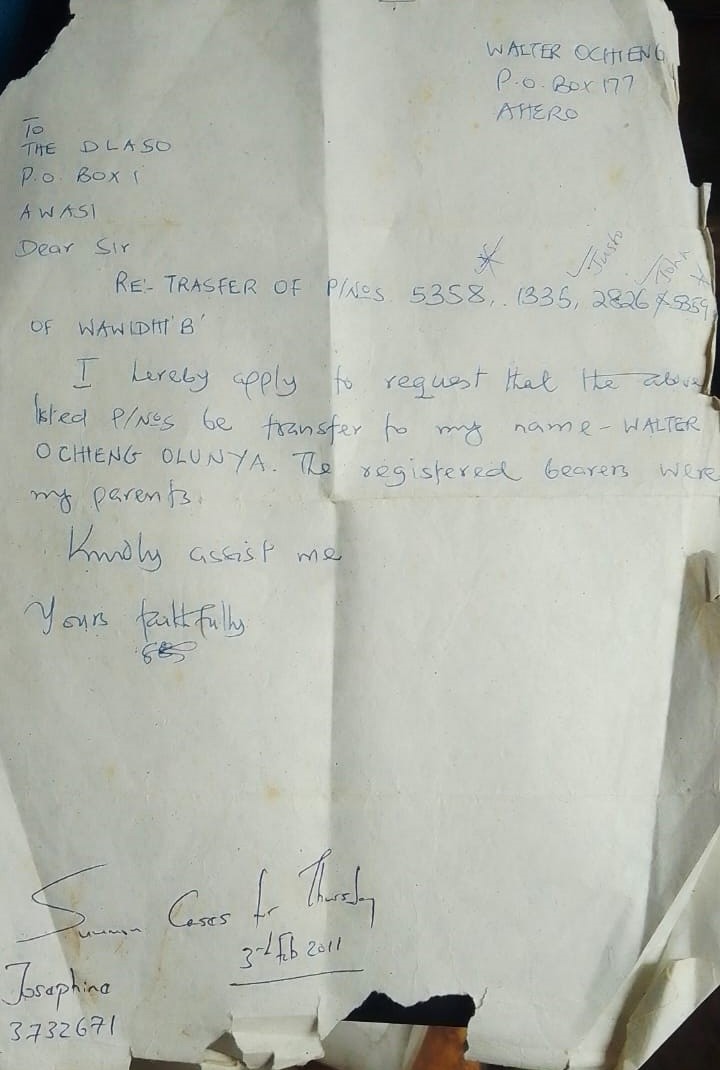 WALTER OCHIENG
P.O. BOX 177
AHERO
To
THE DLASO
P.O. BOX 1
AWASI
Dear Sir
Justo
John
RE:- TRASFER OF P/Nos. 5358, 1335, 2826 & 5359
OF WAWIDHI 'B'
I hereby apply to request that the above
listed P/Nos be transfer to my name - WALTER
OCHIENG OLUNYA. The registered bearers were
my parents.
Kindly assist me
Yours faithfully
Summon Cases for Thursday
3rd Feb 2011
Josephine
3732671